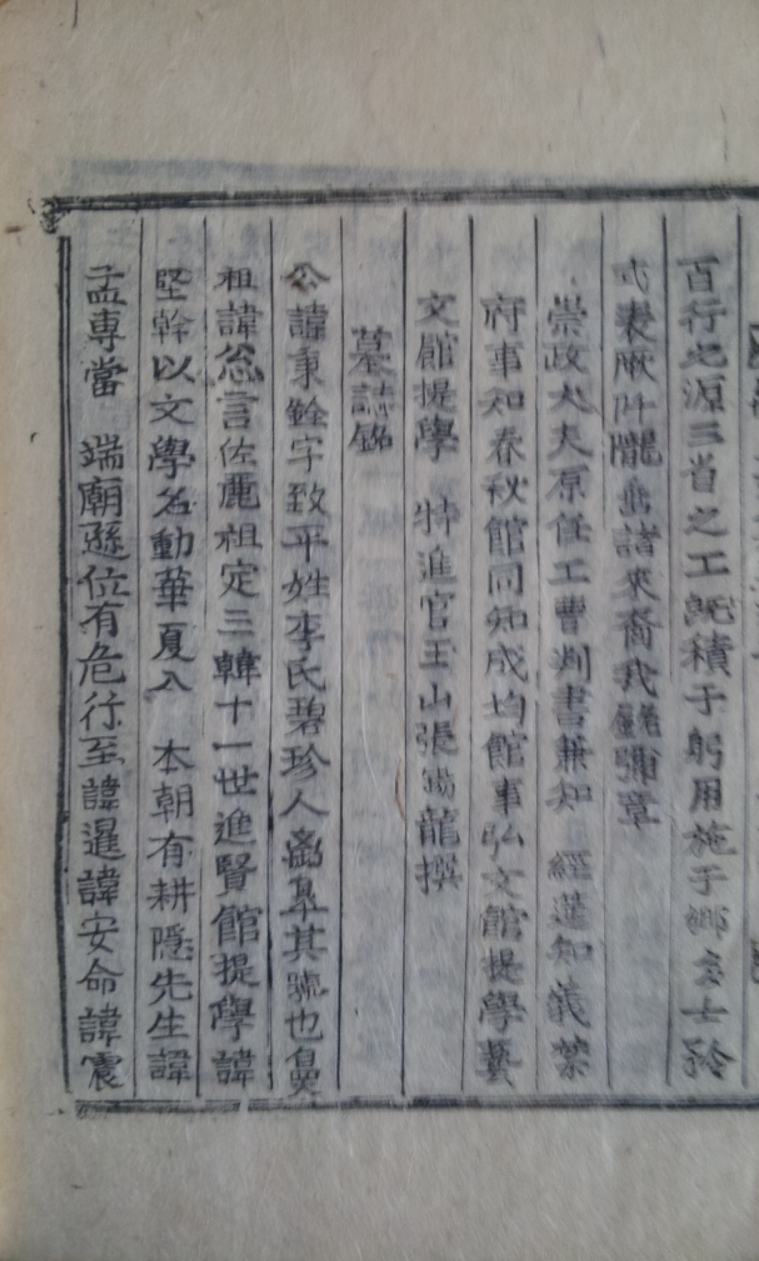 百行之源三省之工旣積于躬用施于鄕多士矜
式表厥阡隴垂諸來裔我銘孔章
崇政大夫原任工曹判書兼知 經筵知義禁
府事知春秋館同知成均館事弘文館提學藝
文館提學 特進官玉山張錫龍撰
墓誌銘
公諱秉銓字致平姓李氏碧珍人 其號也鼻
祖諱悤言佐麗祖定三韓十一世進賢館提學諱
堅幹以文學名動華夏入 本朝有耕隱先生諱
孟專當 端廟遜位有危行至諱暹諱安命諱震